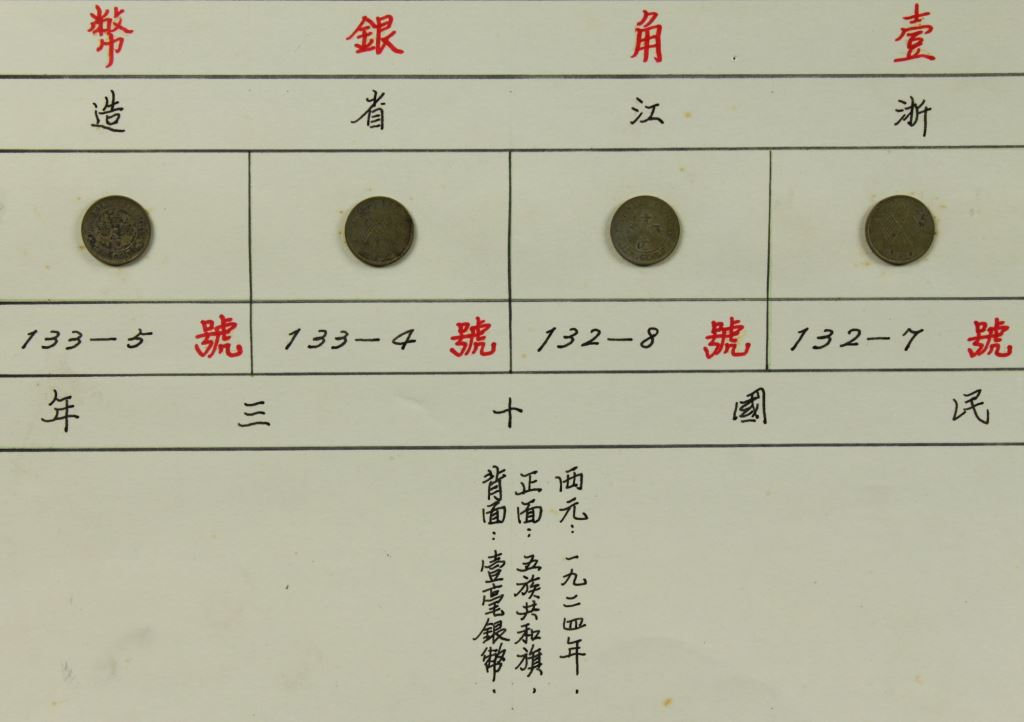 壹角銀幣
浙江省造
號 132-7
號 132-8
號 133-4
號 133-5
民國十三年
西元：一九二四年．
正面：五族共和旗，
背面：壹毫銀幣．